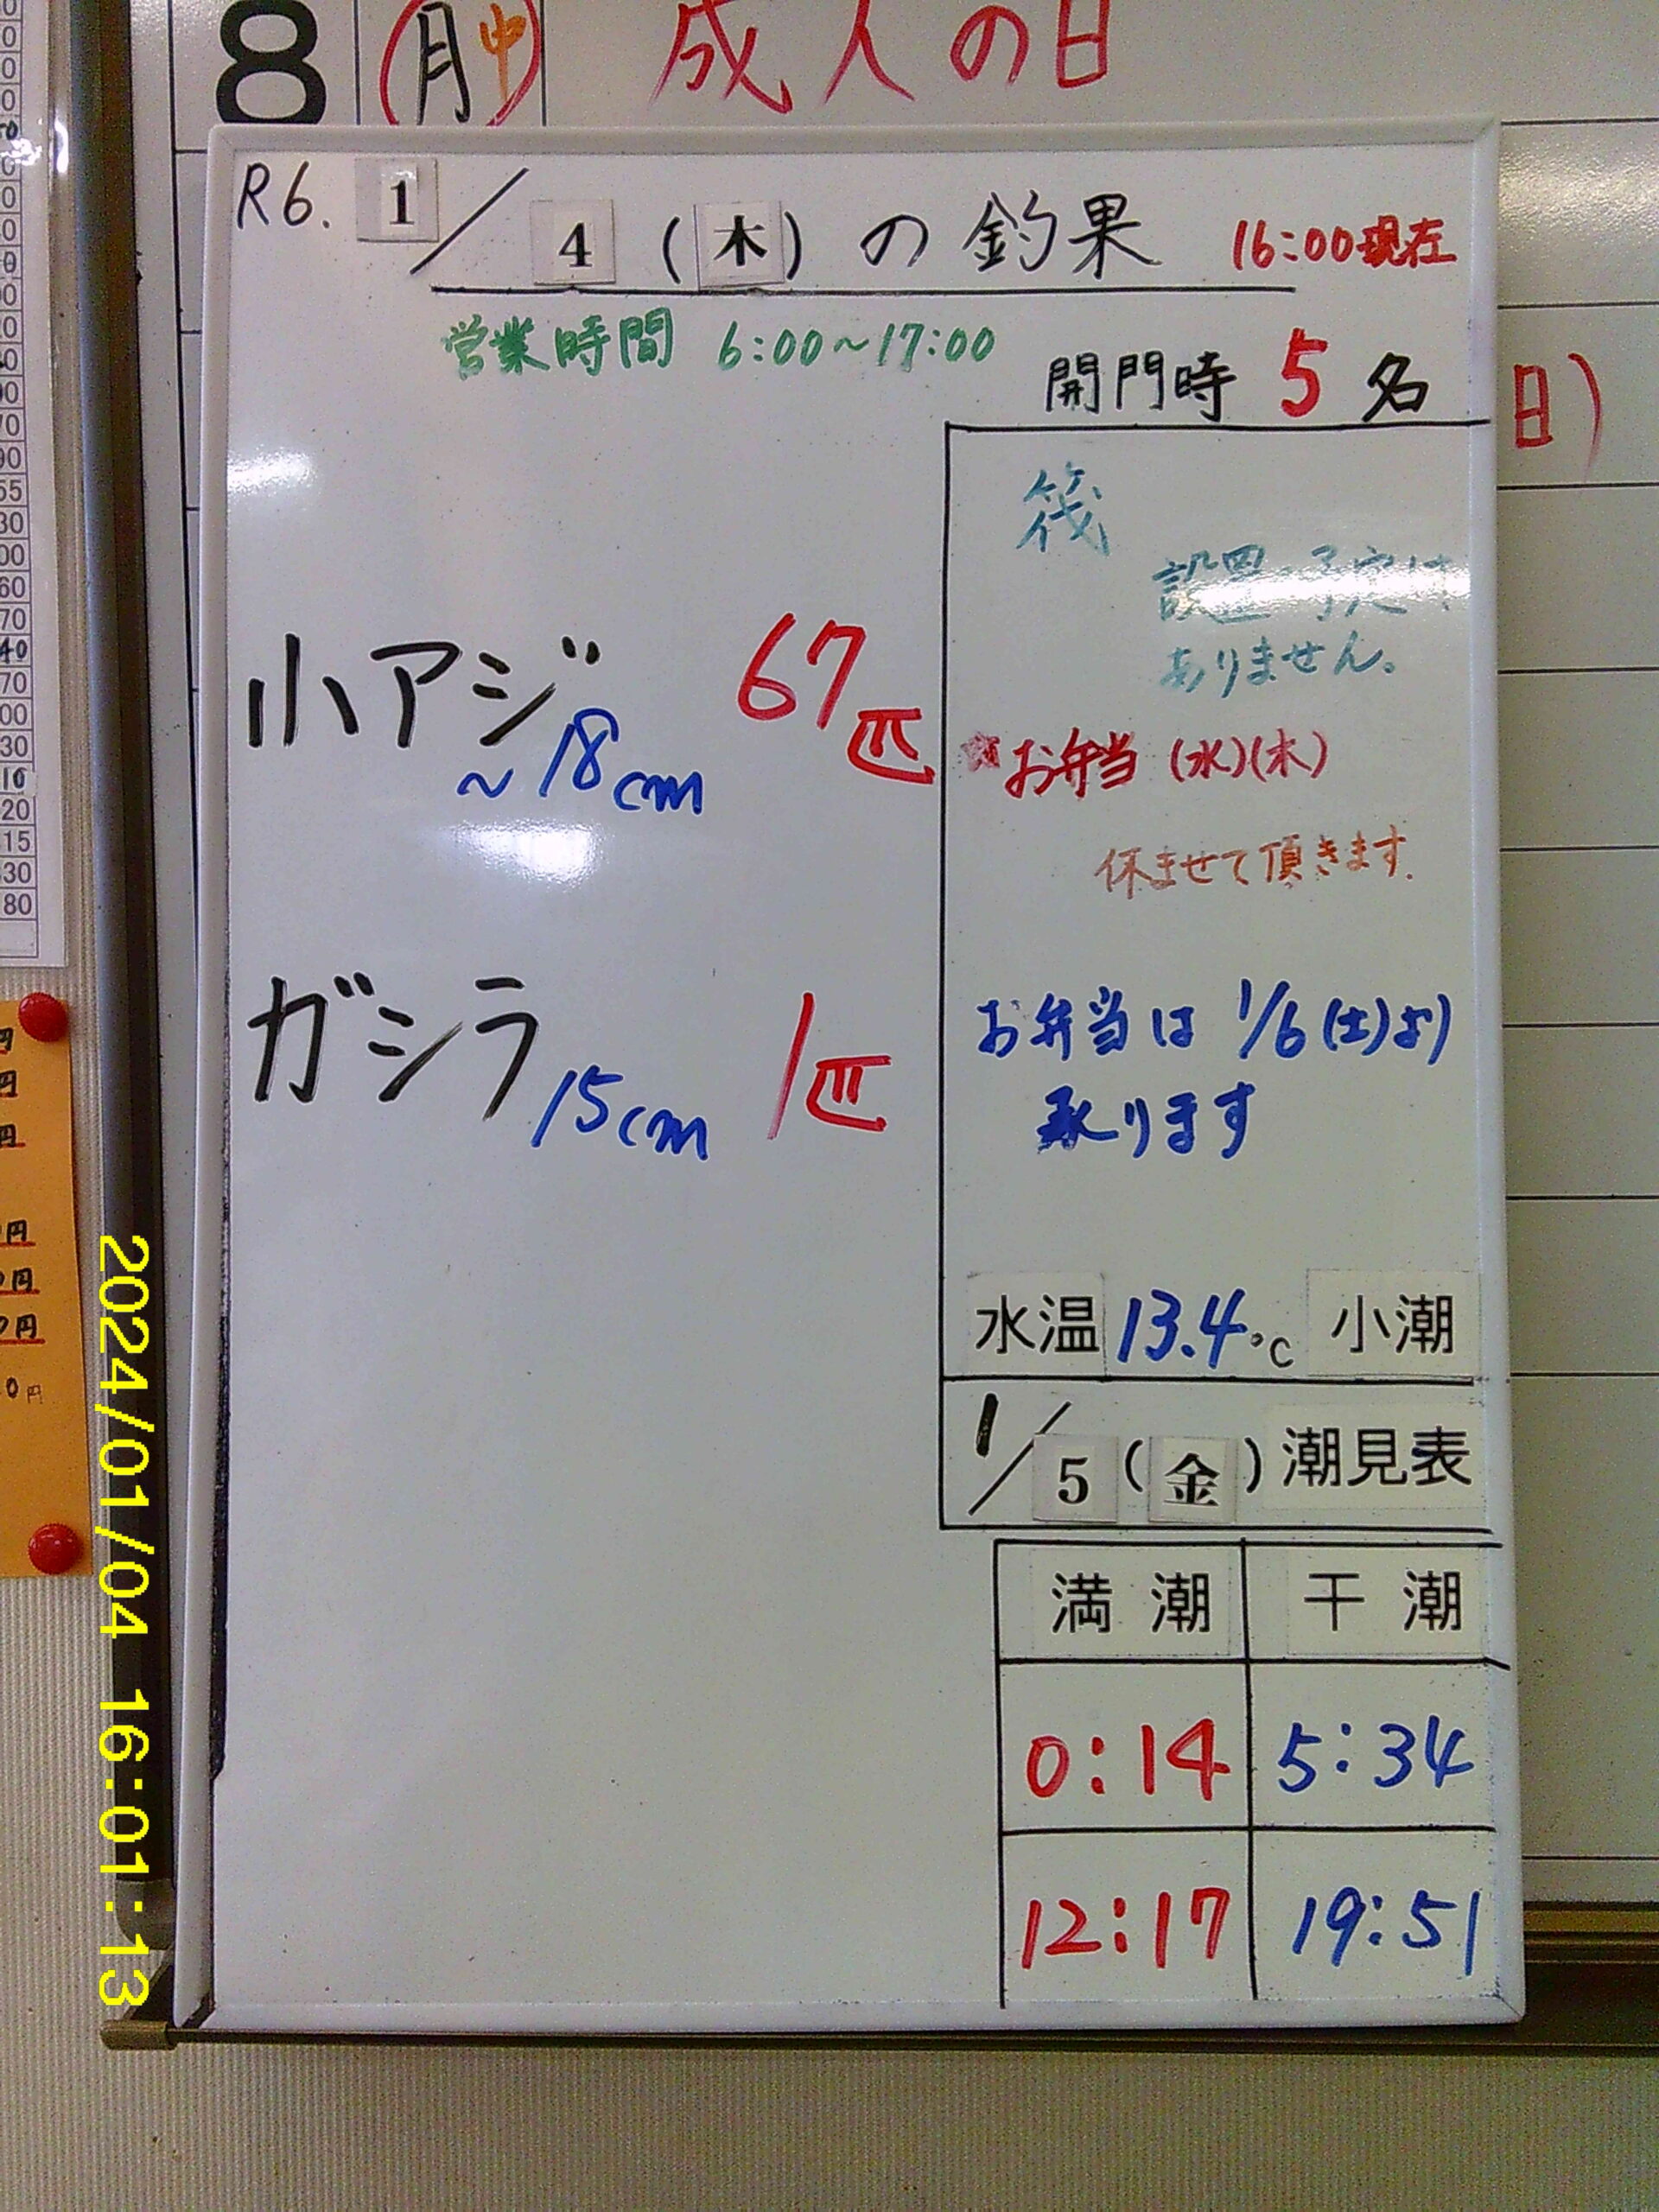 8 (月)中 成人の日
R6. 1/4 (木) の釣果 16:00現在
営業時間 6:00~17:00
開門時 5名
日)
筏
設置予定は
ありません。
小アジ ~18cm 67匹
お弁当 (水)(木)
休ませて頂きます.
ガシラ 15cm 1匹
お弁当は 1/6(土)より
承ります
水温 13.4℃ 小潮
1/5 (金) 潮見表
満潮 干潮
0:14 5:34
12:17 19:51
2024/01/04 16:01:13